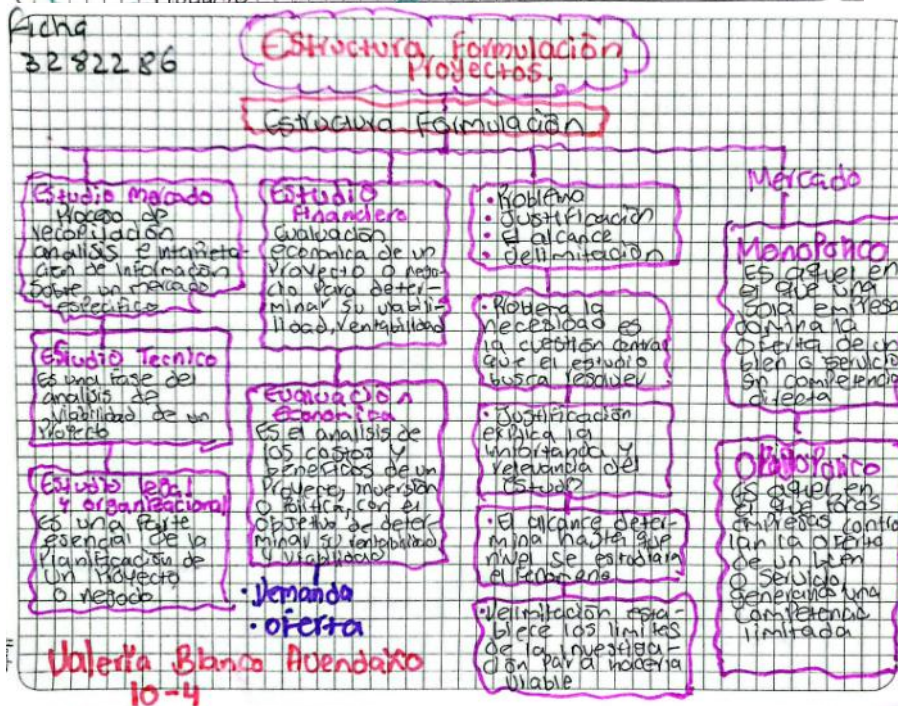 Ficha
3282286
Estructura Formulación
Proyectos.
Estructura Formulación
Estudio Mercado
Proceso de
recopilación
analisis e interpreta-
ción de información
sobre un mercado
especifico
Estudio Tecnico
es una fase del
analisis de
viabilidad de un
Proyecto
Estudio legal
y organizacional
es una parte
esencial de la
Planificación de
un Proyecto
o negocio
Estudio
Financiero
evaluación
economica de un
Proyecto o nego-
cio para deter-
minar su viabili-
lidad, rentabilidad
Evaluación
Economica
es el analisis de
los costos y
beneficos de un
Proyeco, inversión
o Politica, con el
objetivo de deter-
minar su rentabilidad
y viabilidad
• Demanda
• oferta
• Problema
• Justificación
• El alcance
• delimitación
la
necesidad es
la cuestión central
que el estudio
busca resolver
• Justificación
explica la
y
relevancia del
Estudo
• El alcance deter-
mina hasta que
nivel se estudiara
el fenomeno
• Delimitación esta-
blece los limites
de la investiga-
ción Para hacerla
viable
Mercado
MonoPolico
es aquel en
el que una
sola empresa
domina la
oferta de un
bien o servicio
sin competencia
directa
es aquel en
el que
empresas contro
lan la oferta
de un bien
o Servicio,
generando una
limitada
Valeria Blanco Avendaño
10-4